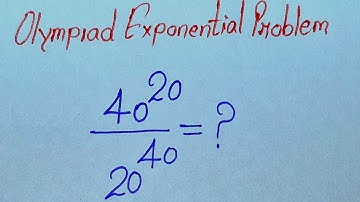 Olympiad Exponential Problem
40^20
/ 20^40 = ?